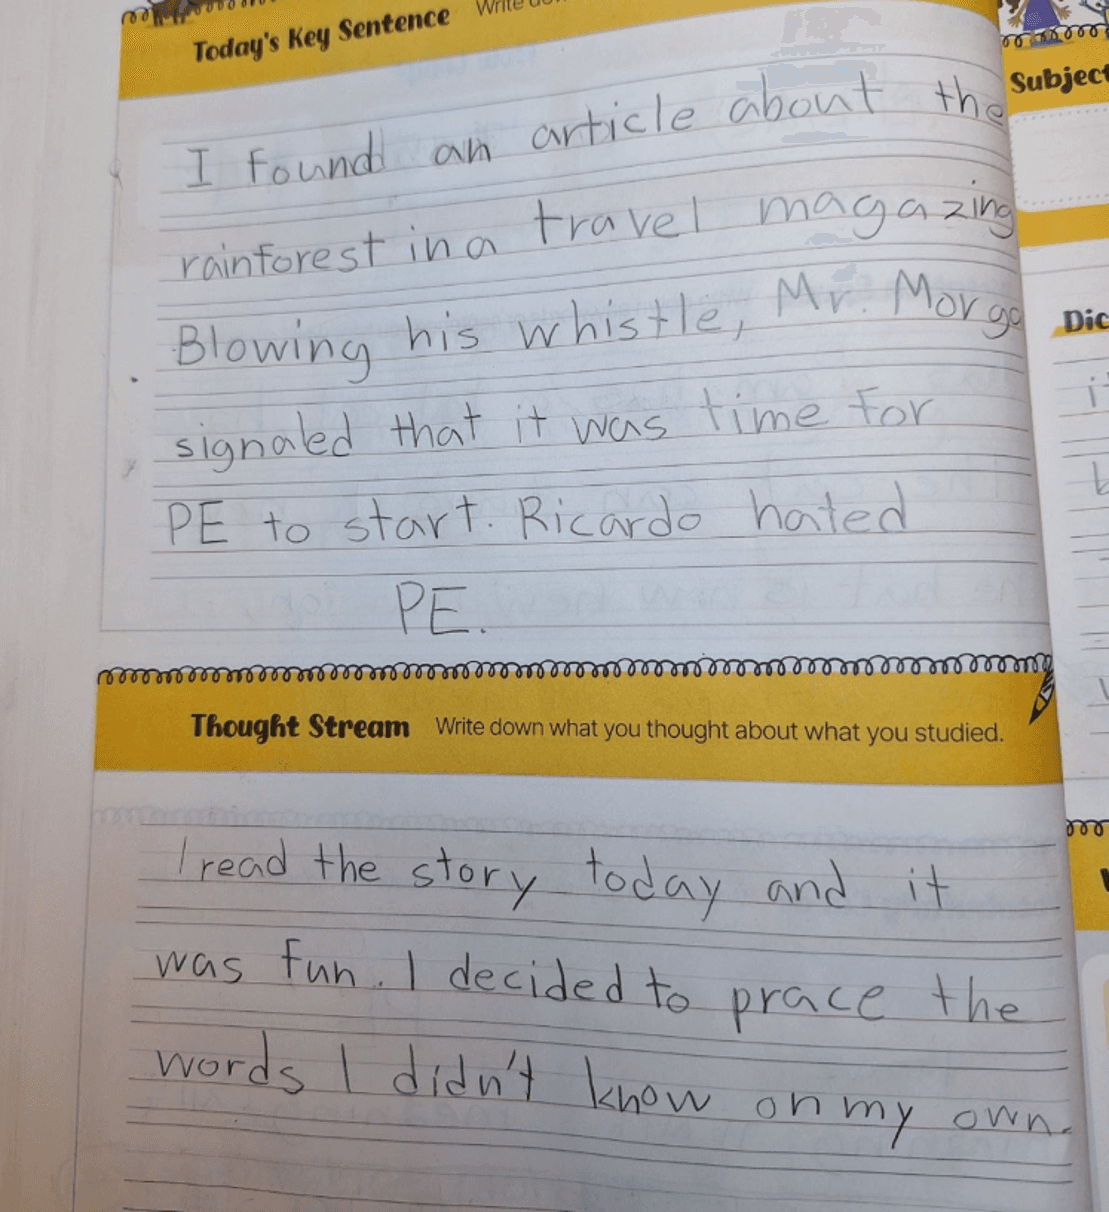 Today's Key Sentence Write
I found an article about the
rainforest in a travel magazing
Blowing his whistle, Mr. Morga
signaled that it was time for
PE to start. Ricardo hated
PE.
Thought Stream Write down what you thought about what you studied.
I read the story today and it
was fun. I decided to prace the
words I didn't know on my own.
Subject
Dic